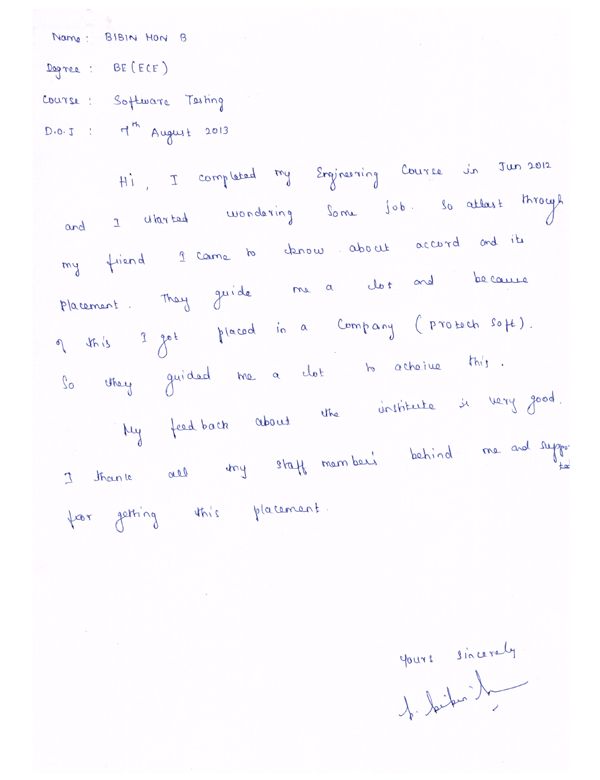 Name : BIBIN MON B
Degree : BE (ECE)
Course : Software Testing
D.O.J : 7th August 2013
Hi, I completed my Engineering Course in Jun 2012
and I started wondering Some job. So atlast through
my friend I came to know about accord and its
placement. They guide me a lot and because
of this I got placed in a Company (protech soft).
So they guided me a lot to acheive this.
My feedback about the institute is very good.
I thank all my staff members behind me and suppo-
ted
foor getting this placement.
Yours sincerely